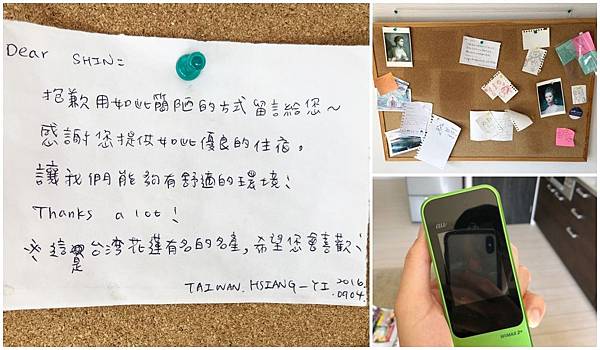 Dear SHIN:
抱歉用如此簡陋的方式留言給您~
感謝您提供如此優良的住宿。
讓我們能夠有舒適的環境!
Thanks a lot!
※ 這是台湾花蓮有名的名產,希望您會喜歡!
TAIWAN. HSIANG-YI 2016.
.0904.
au
WiMAX 2+